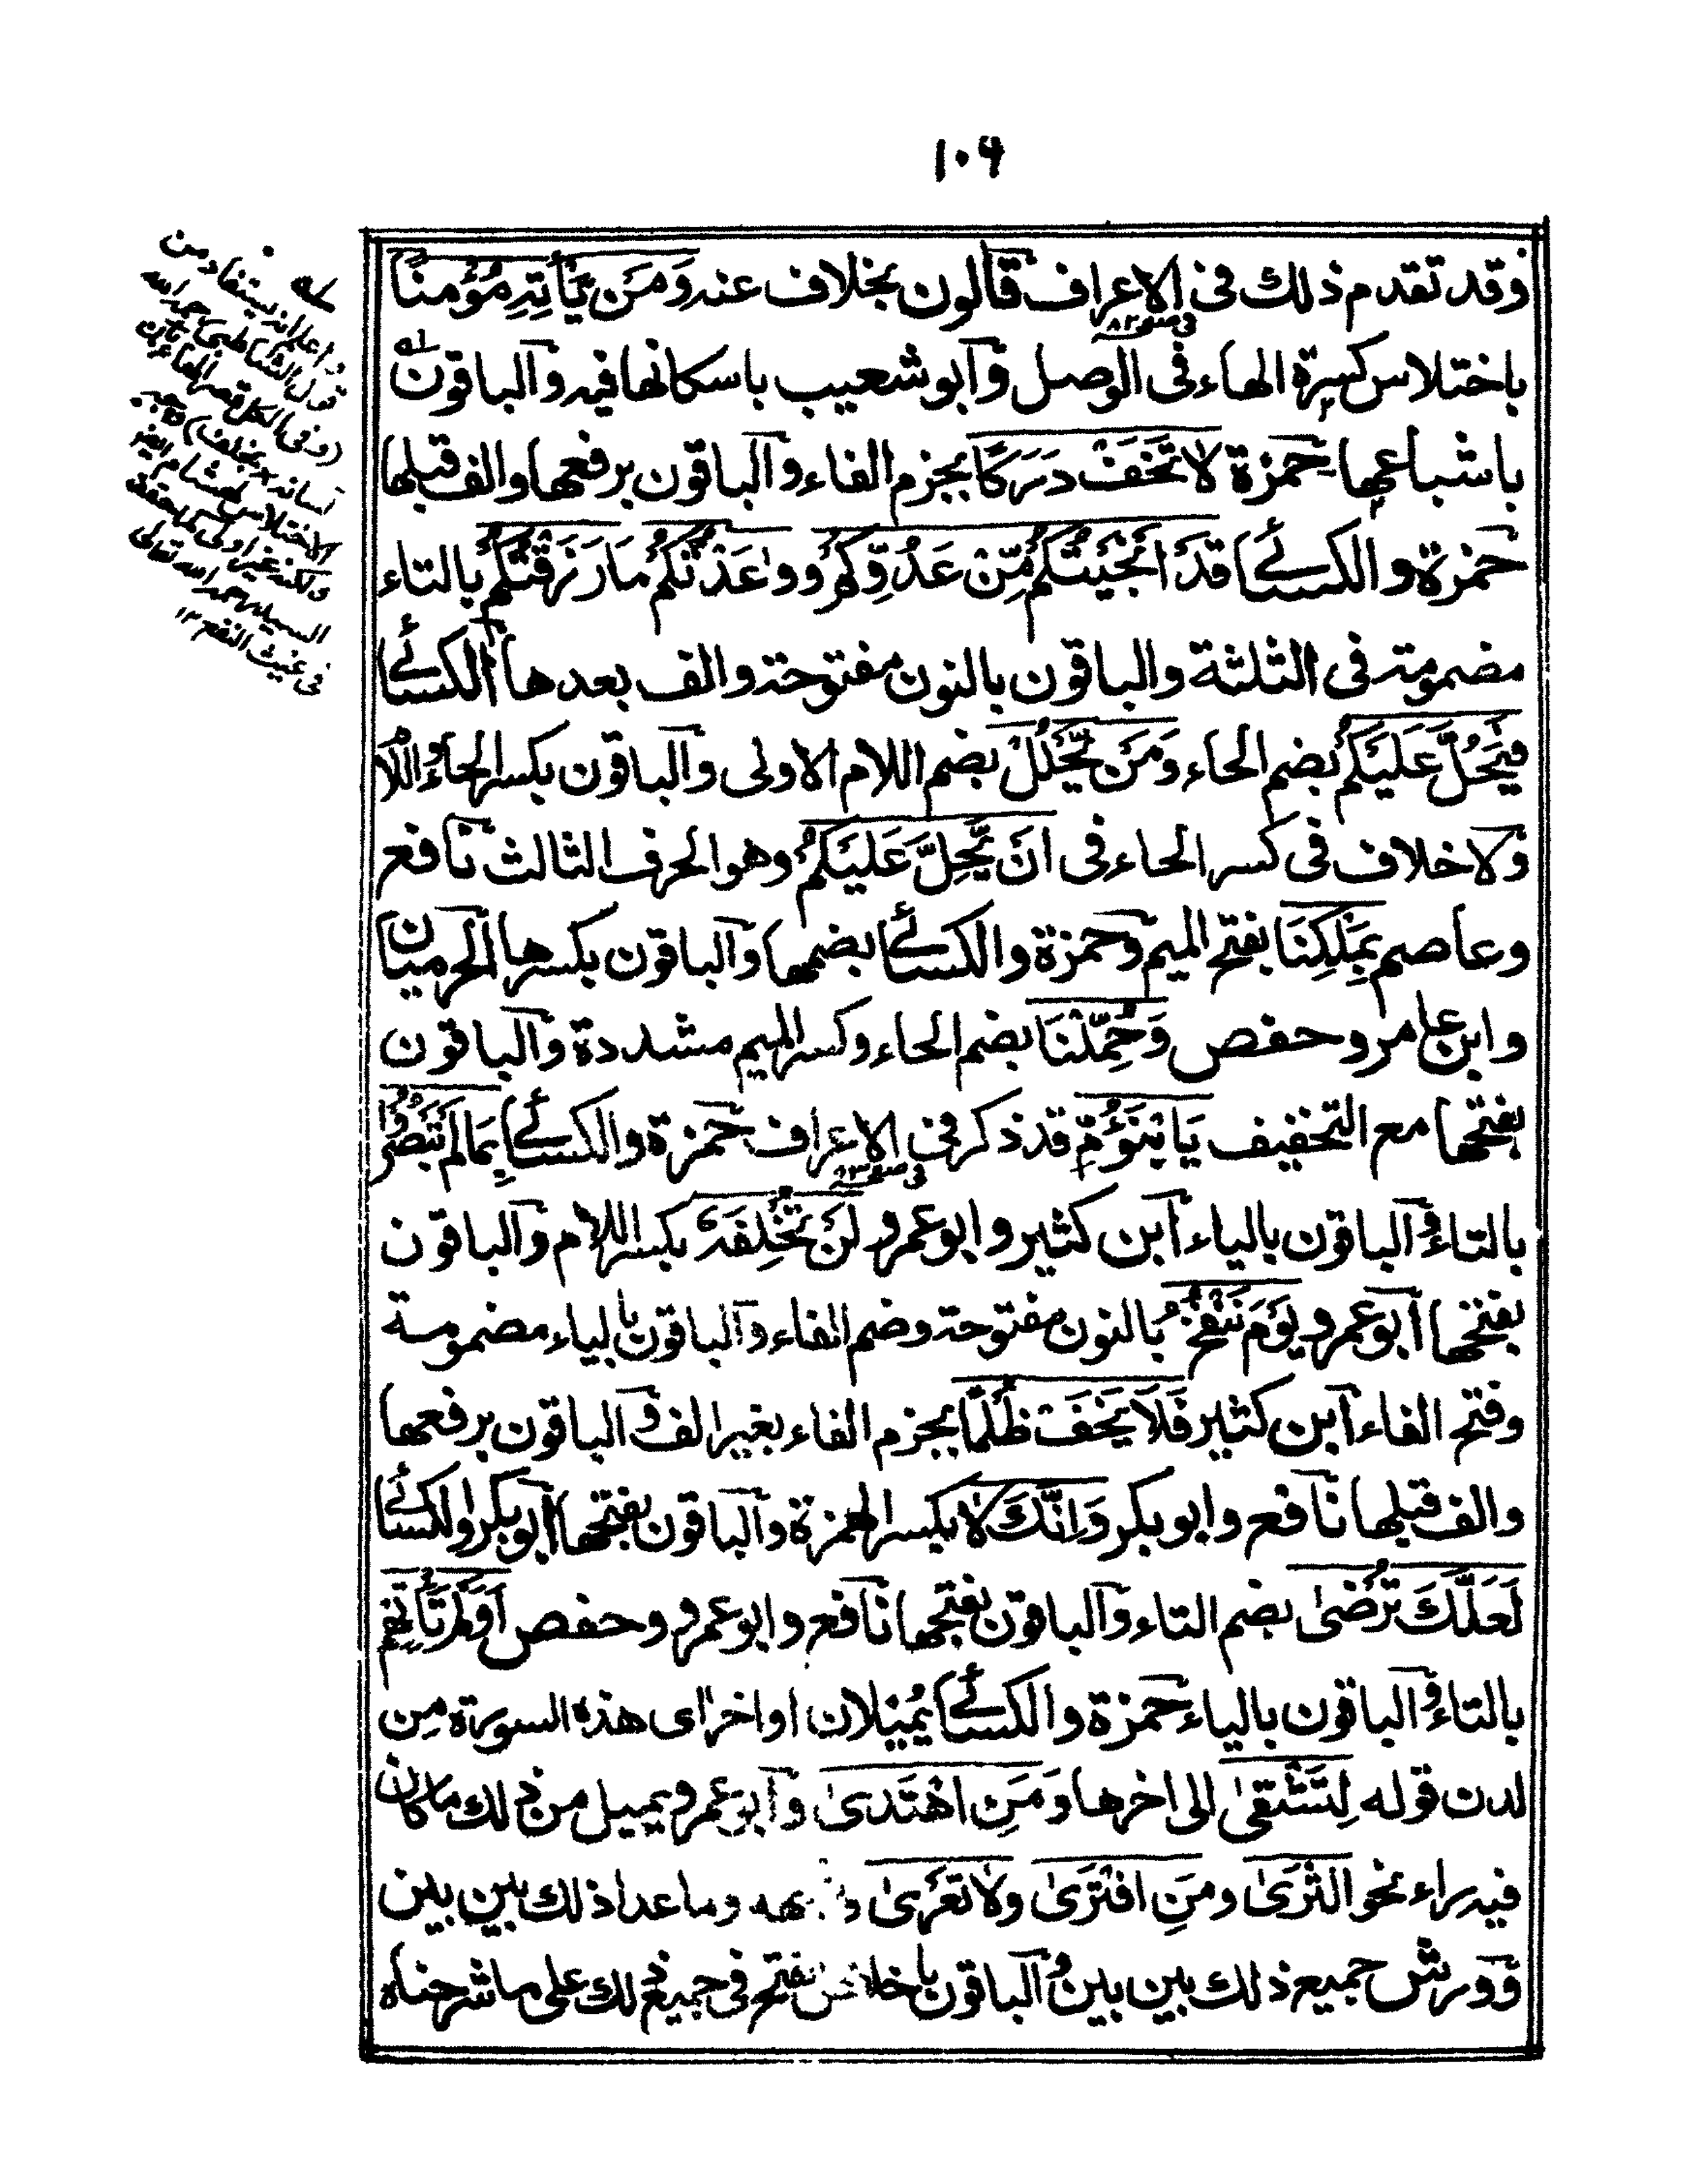 ١٠٩
وقد تقدم ذلك فى الاعراف قالون بخلاف عنه وَمَنْ يَّأْتِهِ مُؤْمِنًا
فى صفحہ ٨٢
باختلاس كسرة الهاء فى الوصل وابو شعيب باسكانها فيه والباقون
باشباعها حمزة لَا تَخَفْ دَرَكًا بجزم الفاء والباقون برفعها والف قبلها
حمزة والكسائے قَدْ اَنْجَيْتُكُمْ مِّنْ عَدُوِّكُمْ ووٰعَدْتُكُمْ مَا رَزَقْتُكُمْ بالتاء
مضمومة فى الثلثة والباقون بالنون مفتوحة والف بعدها الكسائے
فَيَحُلَّ عَلَيْكُمْ بضم الحاء وَمَنْ يَّحْلُلْ بضم اللام الاولى والباقون بكسر الحاء واللام
ولا خلاف فى كسر الحاء فى اَنْ يَّحِلَّ عَلَيْكُمْ وهو الحرف الثالث نافع
وعاصم بِمَلْكِنَا بفتح الميم وحمزة والكسائے بضمها والباقون بكسرها الحرميان
وابن عامر وحفص وَحُمِّلْنَا بضم الحاء وكسر الميم مشددة والباقون
بفتحها مع التخفيف يَا بْنَؤُمِّ قد ذكر فى الاعراف حمزة والكسائے بِمَا لَمْ تَبْصُرُوْا
فى صفحہ ٨٣
بالتاء والباقون بالياء ابن كثير وابو عمرو لَنْ تُخْلِفَهٗ بكسر اللام والباقون
بفتحها ابو عمرو يَوْمَ نَنْفُخُ بالنون مفتوحة وضم الفاء والباقون بالياء مضمومة
وفتح الفاء ابن كثير فَلَا يَخَفْ ظُلْمًا بجزم الفاء بغير الف والباقون برفعها
والف قبلها نافع وابو بكر وَاِنَّكَ لَا بكسر الهمزة والباقون بفتحها ابو بكر والكسائے
لَعَلَّكَ تُرْضٰى بضم التاء والباقون بفتحها نافع وابو عمرو وحفص اَوَلَمْ تَأْتِهِمْ
بالتاء والباقون بالياء حمزة والكسائے يُمِيْلان اواخر اى هذه السورة مِن
لدن قوله لِتَشْقٰى الى اخرها وَمَنِ اهْتَدٰى وابو عمرو يميل من ذلك ما كان
فيه راء نحو الثَّرٰى ومَنِ افْتَرٰى ولَا تَعْرٰى وما عدا ذلك بين بين
وورش جميع ذلك بين بين والباقون باخلاص الفتح فى جميع ذلك على ما شرحناه
له
واعلم انه يستفاد من
قول الشاطبى رحمه الله
(وفى الكل قصر الهاء بان
لسانه × بخلف) 
الاختلاس لهشام ايضا
ولكنه غير 
السيد رحمه الله تعالى
فى غيث النفع ١٢